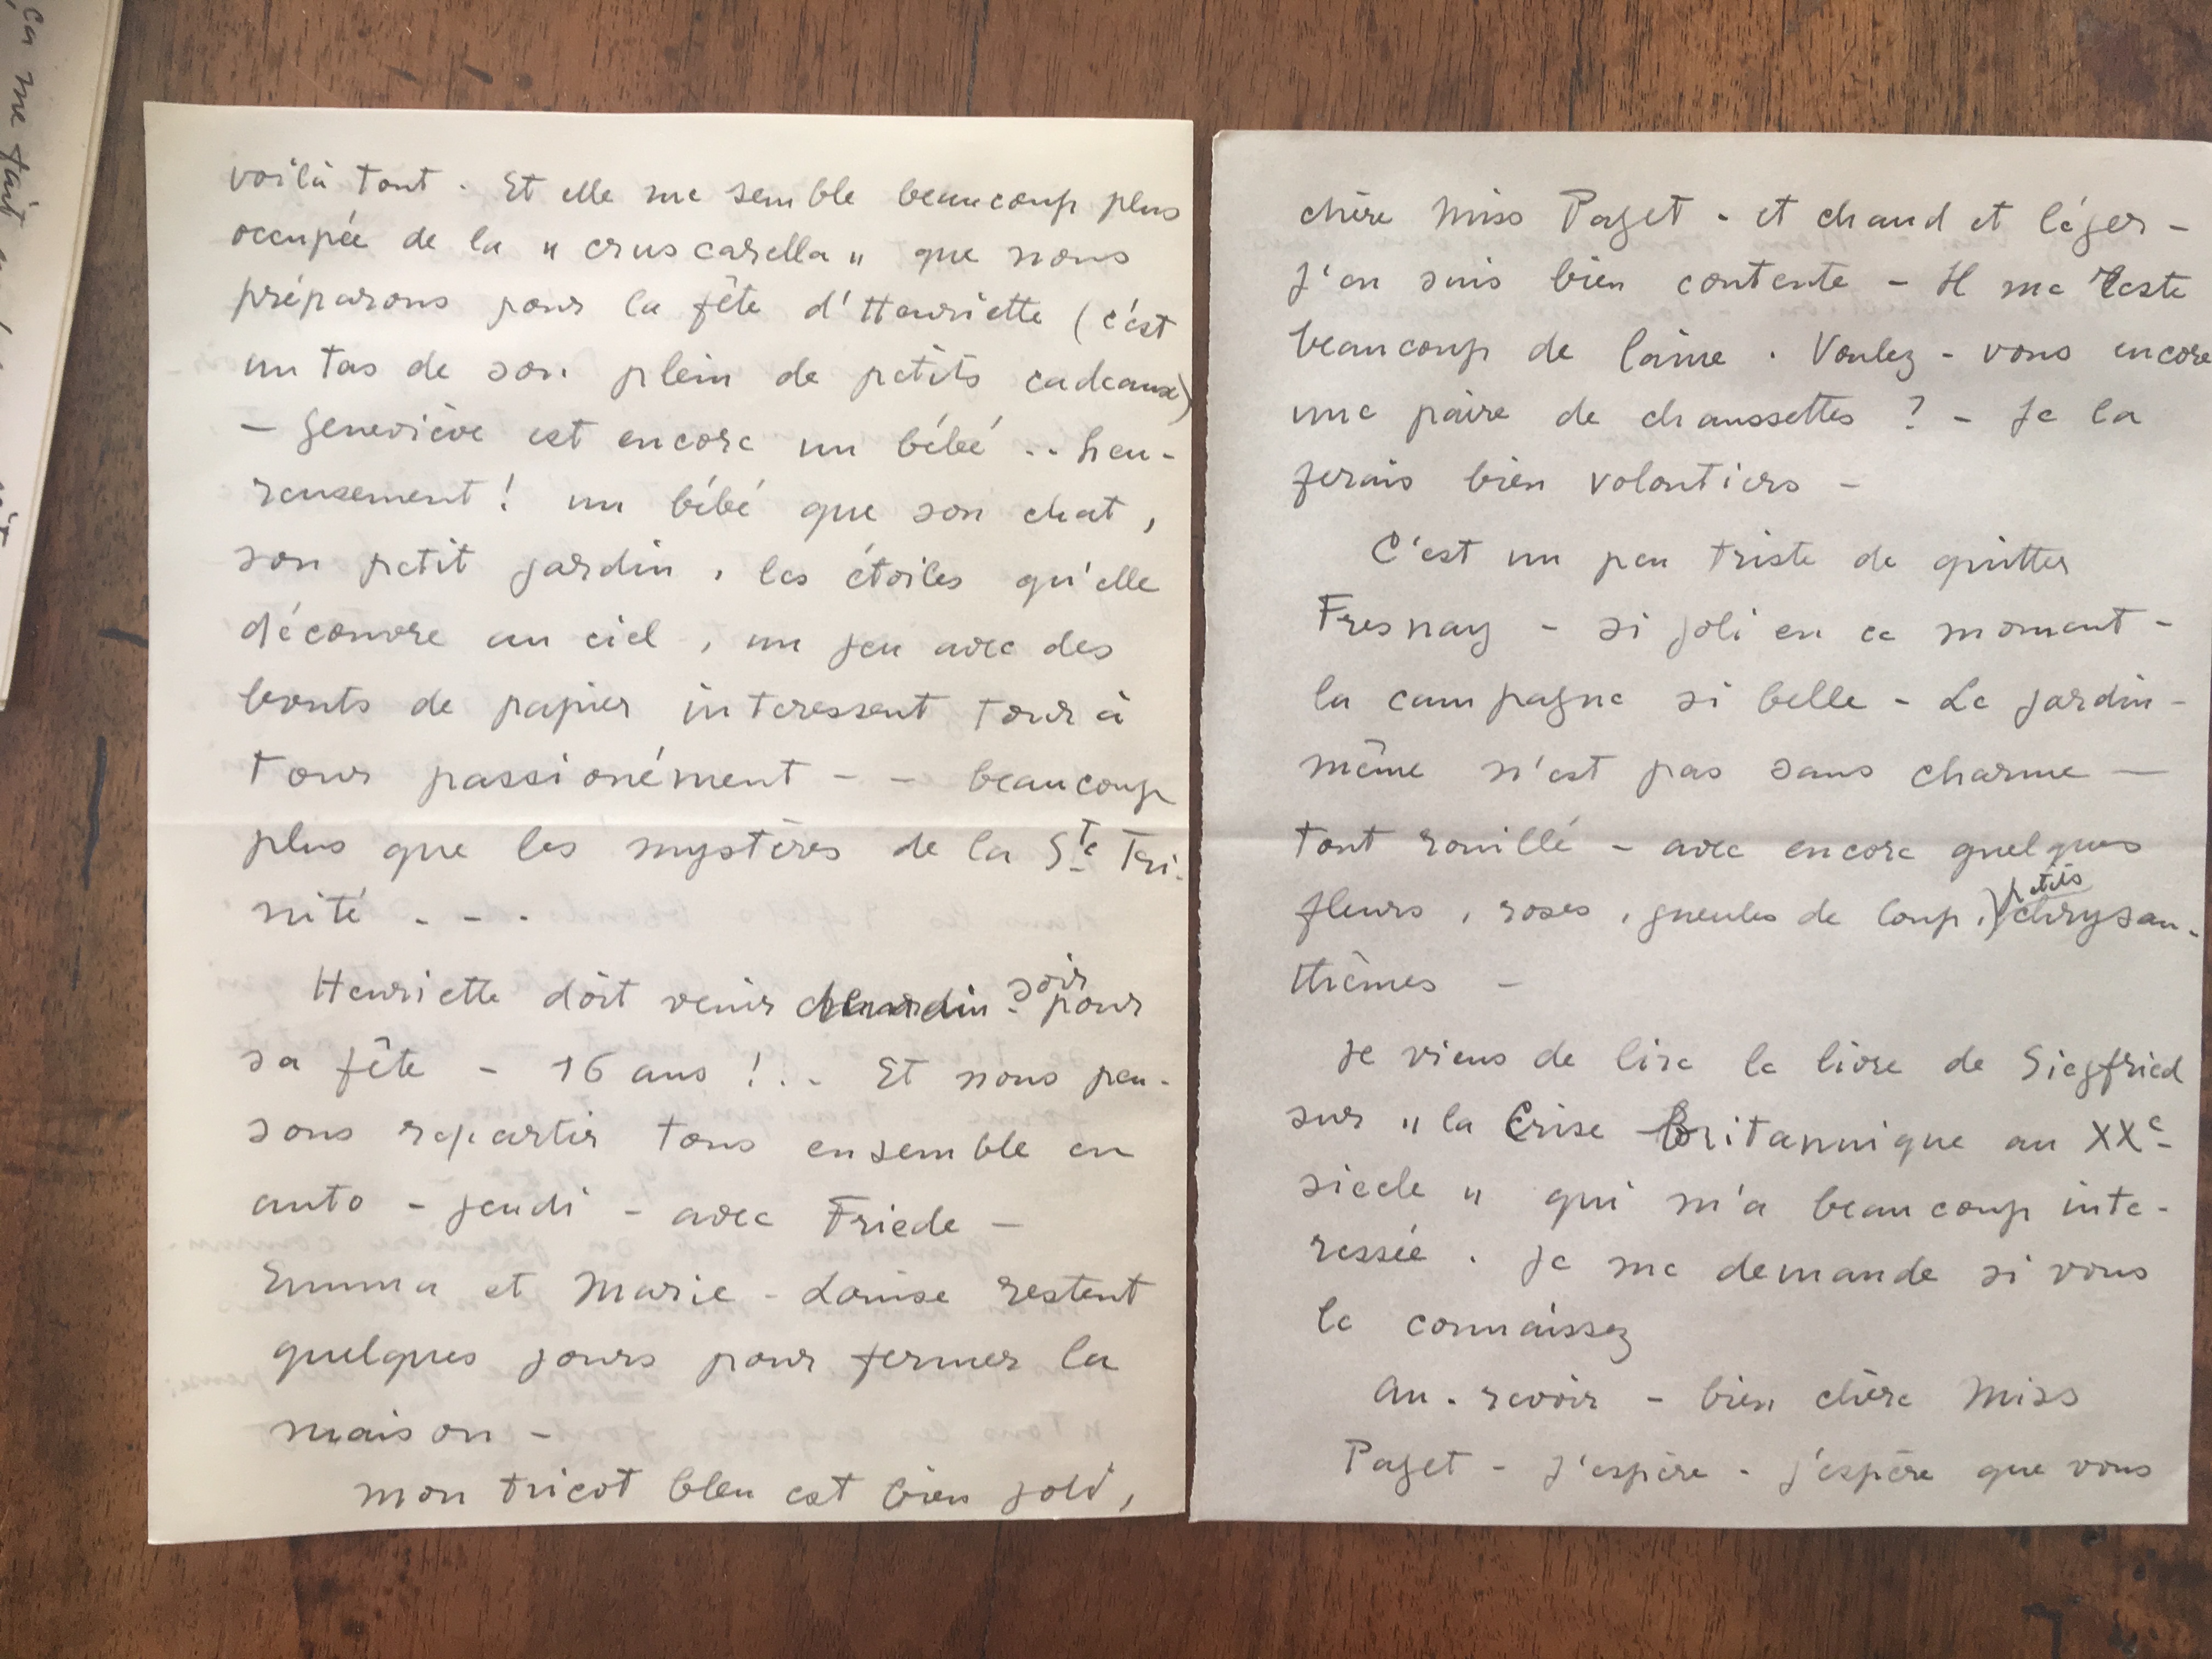 ça me fait
voilà tout. Et elle me semble beaucoup plus
occupée de la " cruscarella " que nous
préparons pour la fête d'Henriette (c'est
un tas de son plein de petits cadeaux)
— Geneviève est encore un bébé .. heu-
reusement! un bébé que son chat,
son petit jardin, les étoiles qu'elle
découvre au ciel, un jeu avec des
bouts de papier interessent tour à
tour passionément - - beaucoup
plus que les mystères de la Ste Tri-
nité - - .
Henriette doit venir soir pour
sa fête - 16 ans !.. Et nous pen-
sons repartir tous ensemble en
auto - jeudi - avec Friede —
Emma et Marie-Louise restent
quelques jours pour fermer la
maison -
mon tricot bleu est bien joli,
chère Miss Paget - et chaud et léger -
J'en suis bien contente - Il me reste
beaucoup de laine. Voulez-vous encore
une paire de chaussettes ? - Je la
ferais bien volontiers -
C'est un peu triste de quitter
Fresnay - si joli en ce moment -
la campagne si belle - Le jardin -
même n'est pas sans charme —
tout rouillé - avec encore quelques
fleurs, roses, gueules de loup, petits chrysan-
thèmes -
Je viens de lire le livre de Siegfried
sur " la Crise britannique au XXe
siecle " qui m'a beaucoup inte-
ressée. Je me demande si vous
le connaissez
Au-revoir - bien chère Miss
Paget - J'espère - j'espère que vous